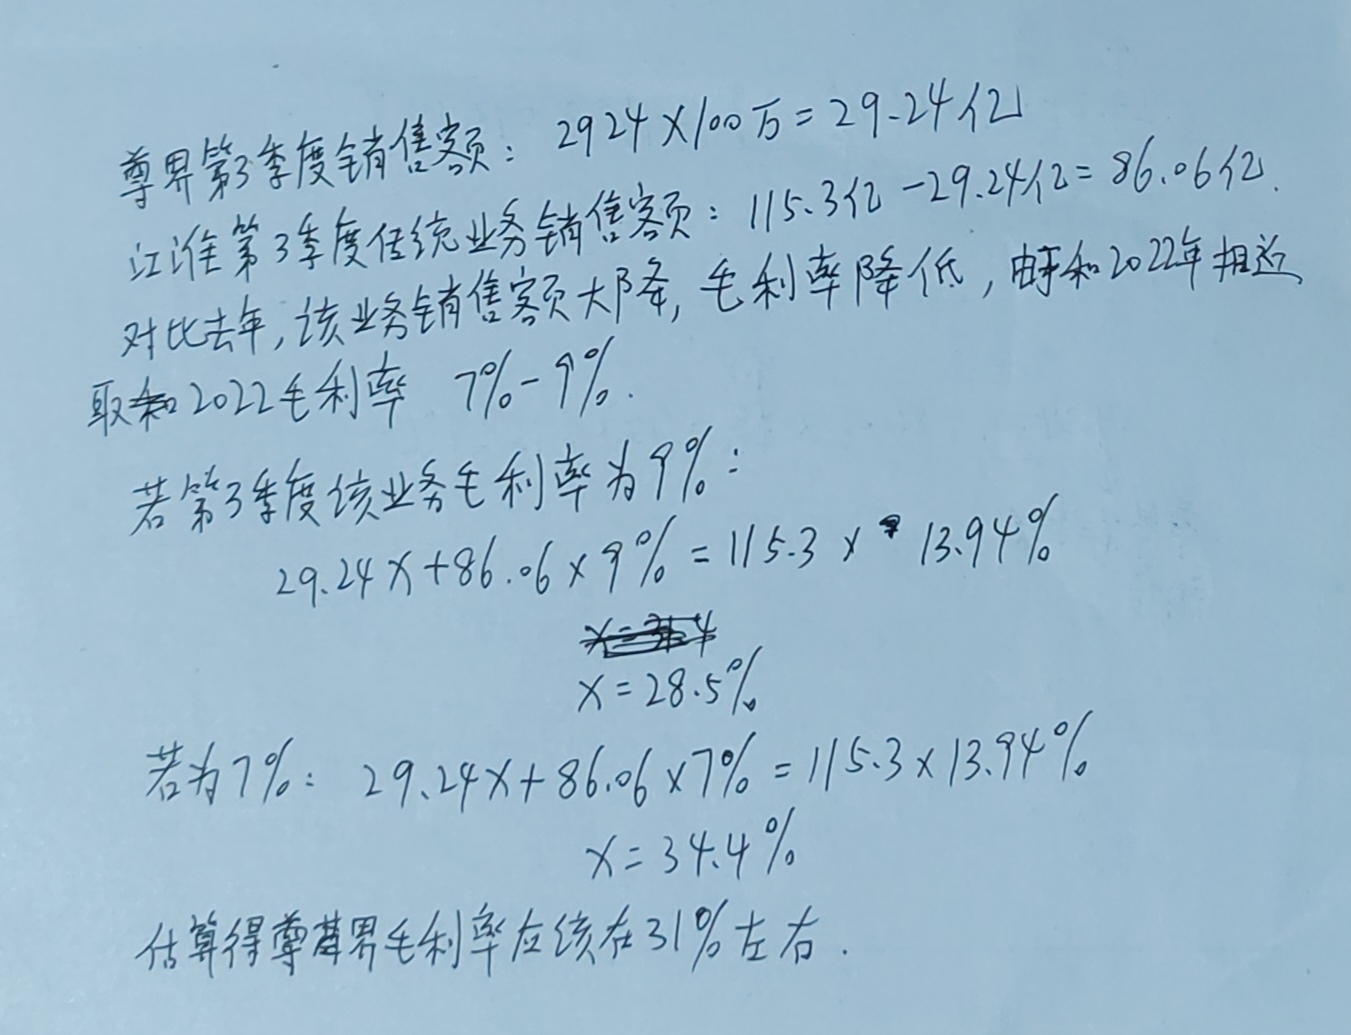 尊界第3季度销售额：2924×100万=29.24亿
江淮第3季度传统业务销售额：115.3亿-29.24亿=86.06亿.
对比去年,该业务销售额大降,毛利率降低,由于和2022年相近
取和2022毛利率 7%-9%.
若第3季度该业务毛利率为9%:
29.24x+86.06×9%=115.3×13.94%
x=28.5%
若为7%: 29.24x+86.06×7%=115.3×13.94%
x=34.4%
估算得尊界毛利率应该在31%左右.